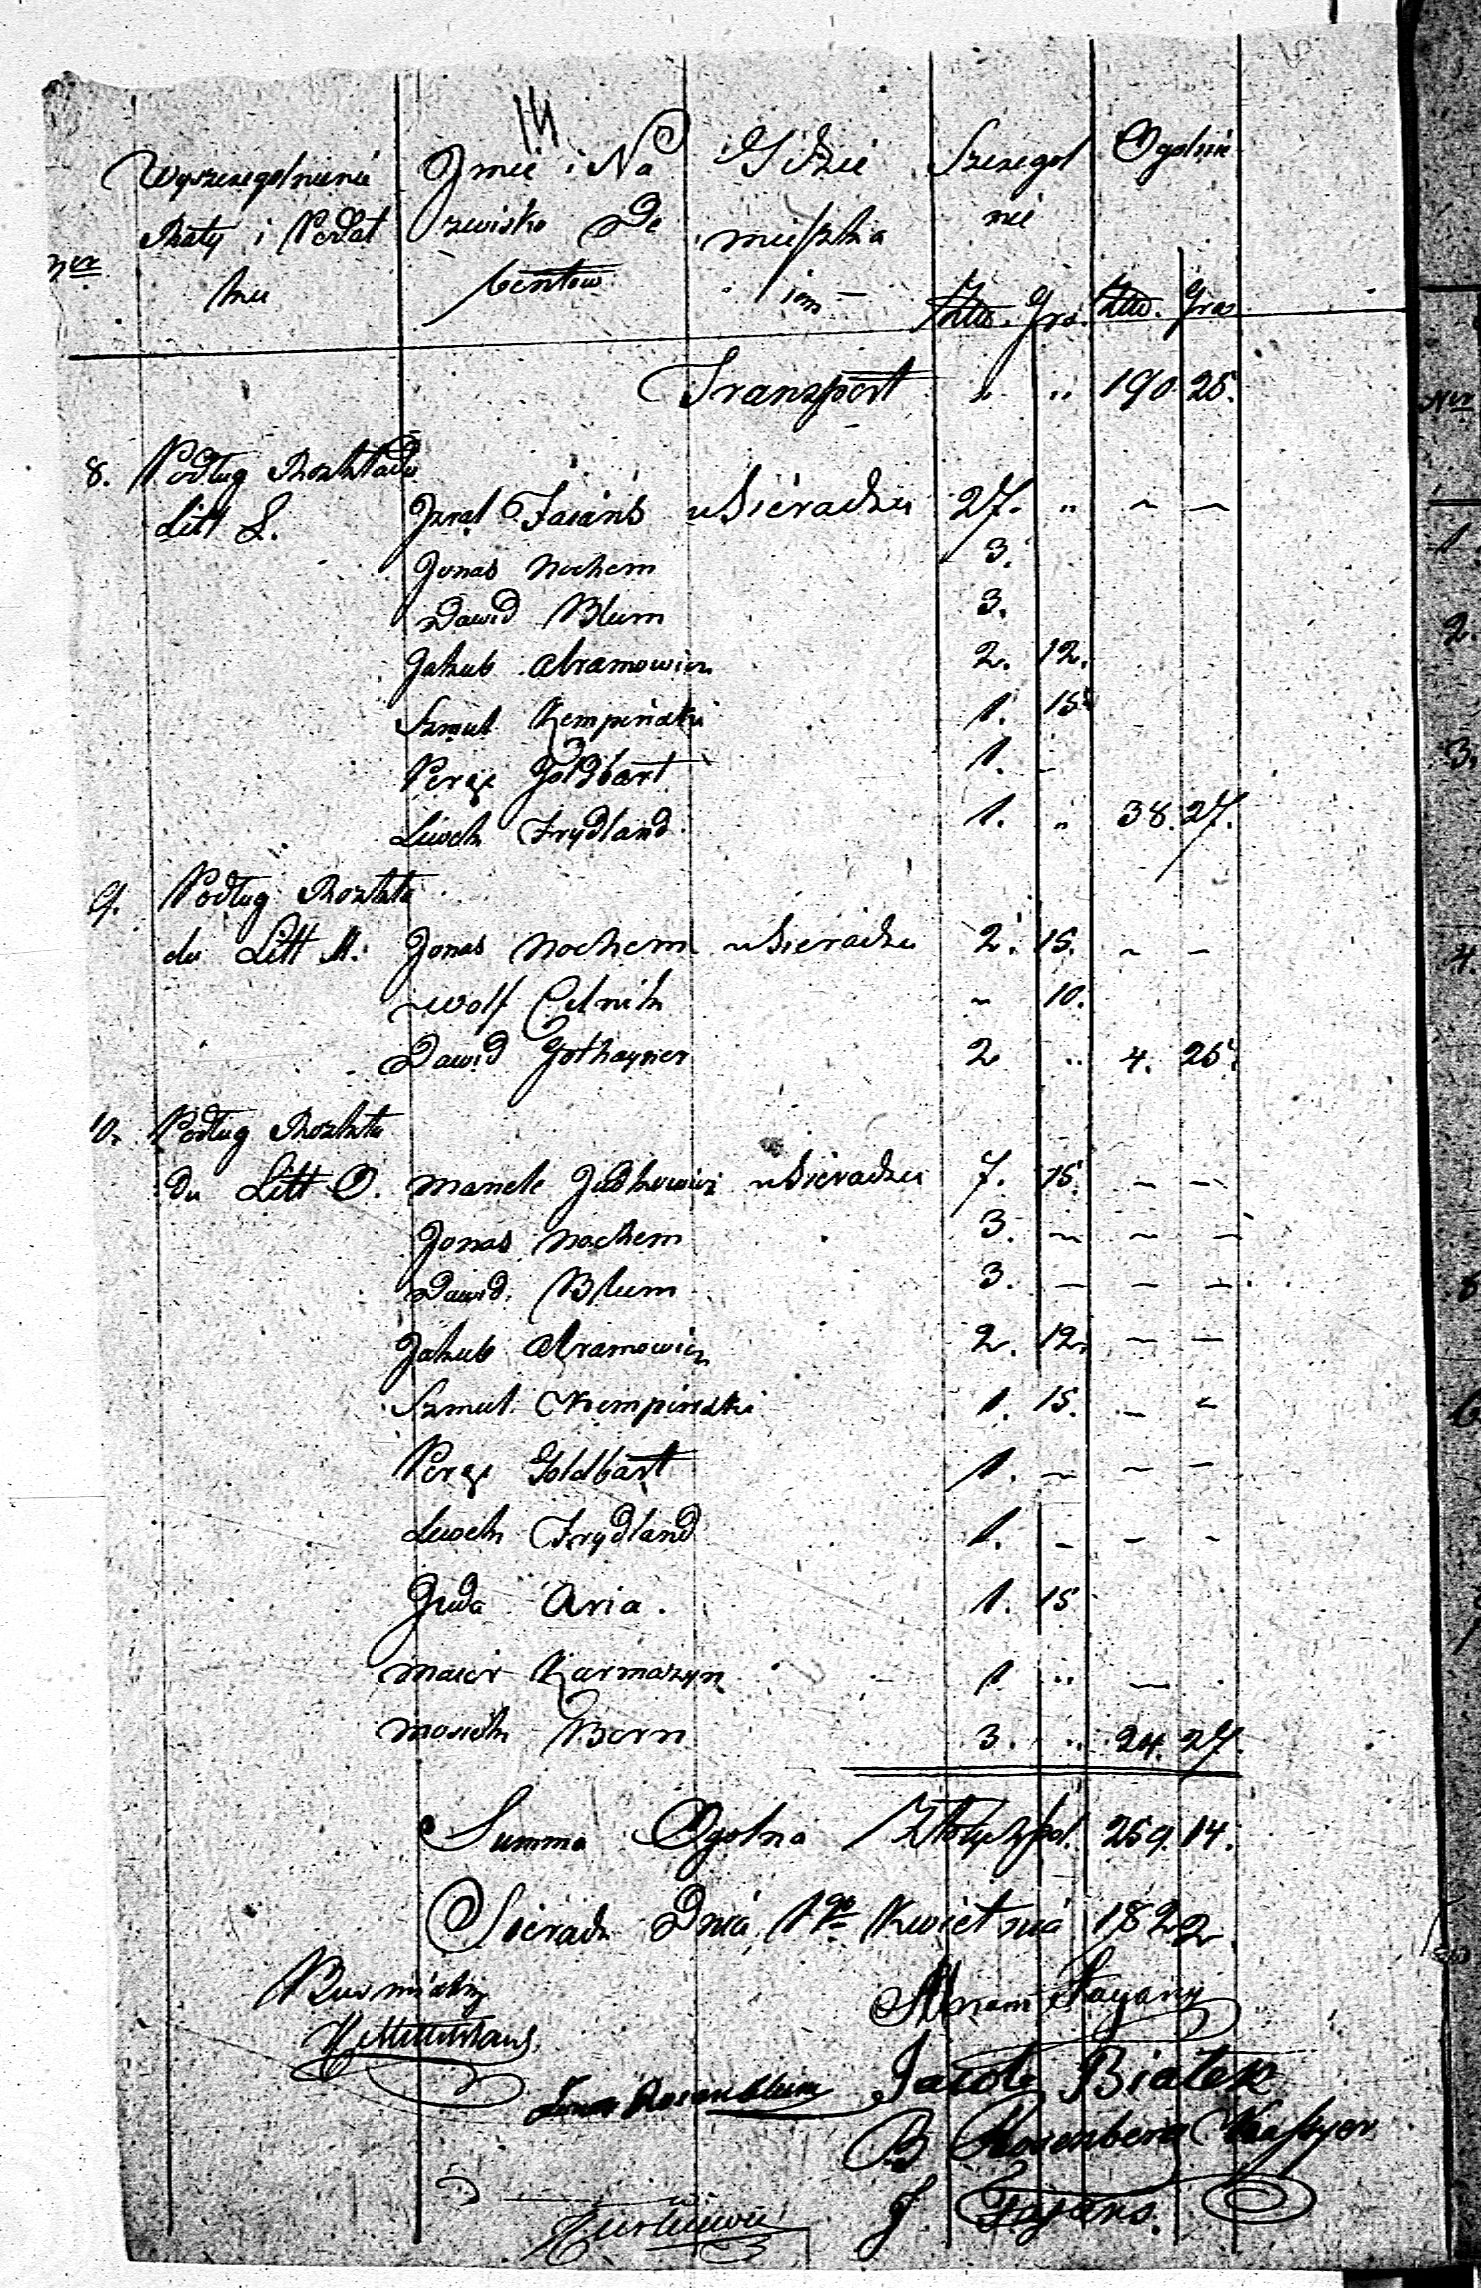 Wyszczegolnienie Jmie i Na Gdzie Szczegol Ogolnie
Raty i Podat zwisko De mieszka nie
Ner ku bentow iom
Złto. Gro. Złto. Gro.
Transport " " 190. 25.
8. Podług Rozkładu
Litt L. Jzral Faians w Sieradzu 27. " ~ ~
Jonas Nochem 3.
Dawid Blum 3.
Jakub Abramowicz 2. 12.
Szmul Kempinski 1. 15.
Perec Goldbart 1. -
Lewek Frydland 1. " 38. 27.
9. Podług Rozkła
du Litt M. Jonas Nochem w Sieradzu 2. 15. ~ ~
Wolf Celnik ~ 10.
Dawid Gothayner 2 " 4. 25.
10. Podług Rozkła
du Litt O. Manele Judkowicz w Sieradzu 7. 15. ~ ~
Jonas Nochem 3. ~ ~ ~
Dawid Blum 3. ~ ~ ~
Jakub Abramowicz 2. 12. ~ ~
Szmul Kempinski 1. 15. ~ ~
Perec Goldbart 1. ~ ~ ~
Lewek Frydland 1. ~ ~ ~
Juda Aria. 1. 15
Maier Karmazyn 1 " ~
Mosiek Born 3. " 24. 27.
Summa Ogolna Złotych pol. 259. 14.
Sieradz Dnia 1go Kwietnia 1822.
Abram Fayans
Jacob Białek
Rosenblum
B Rosenberg Kassyer
J. Fajans.